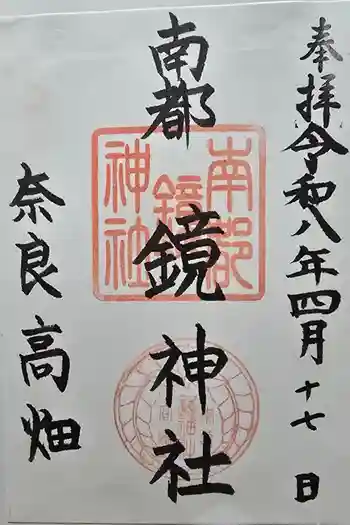 奉拝令和八年四月十七日
南都鏡神社
奈良高畑
南都
鏡
神社